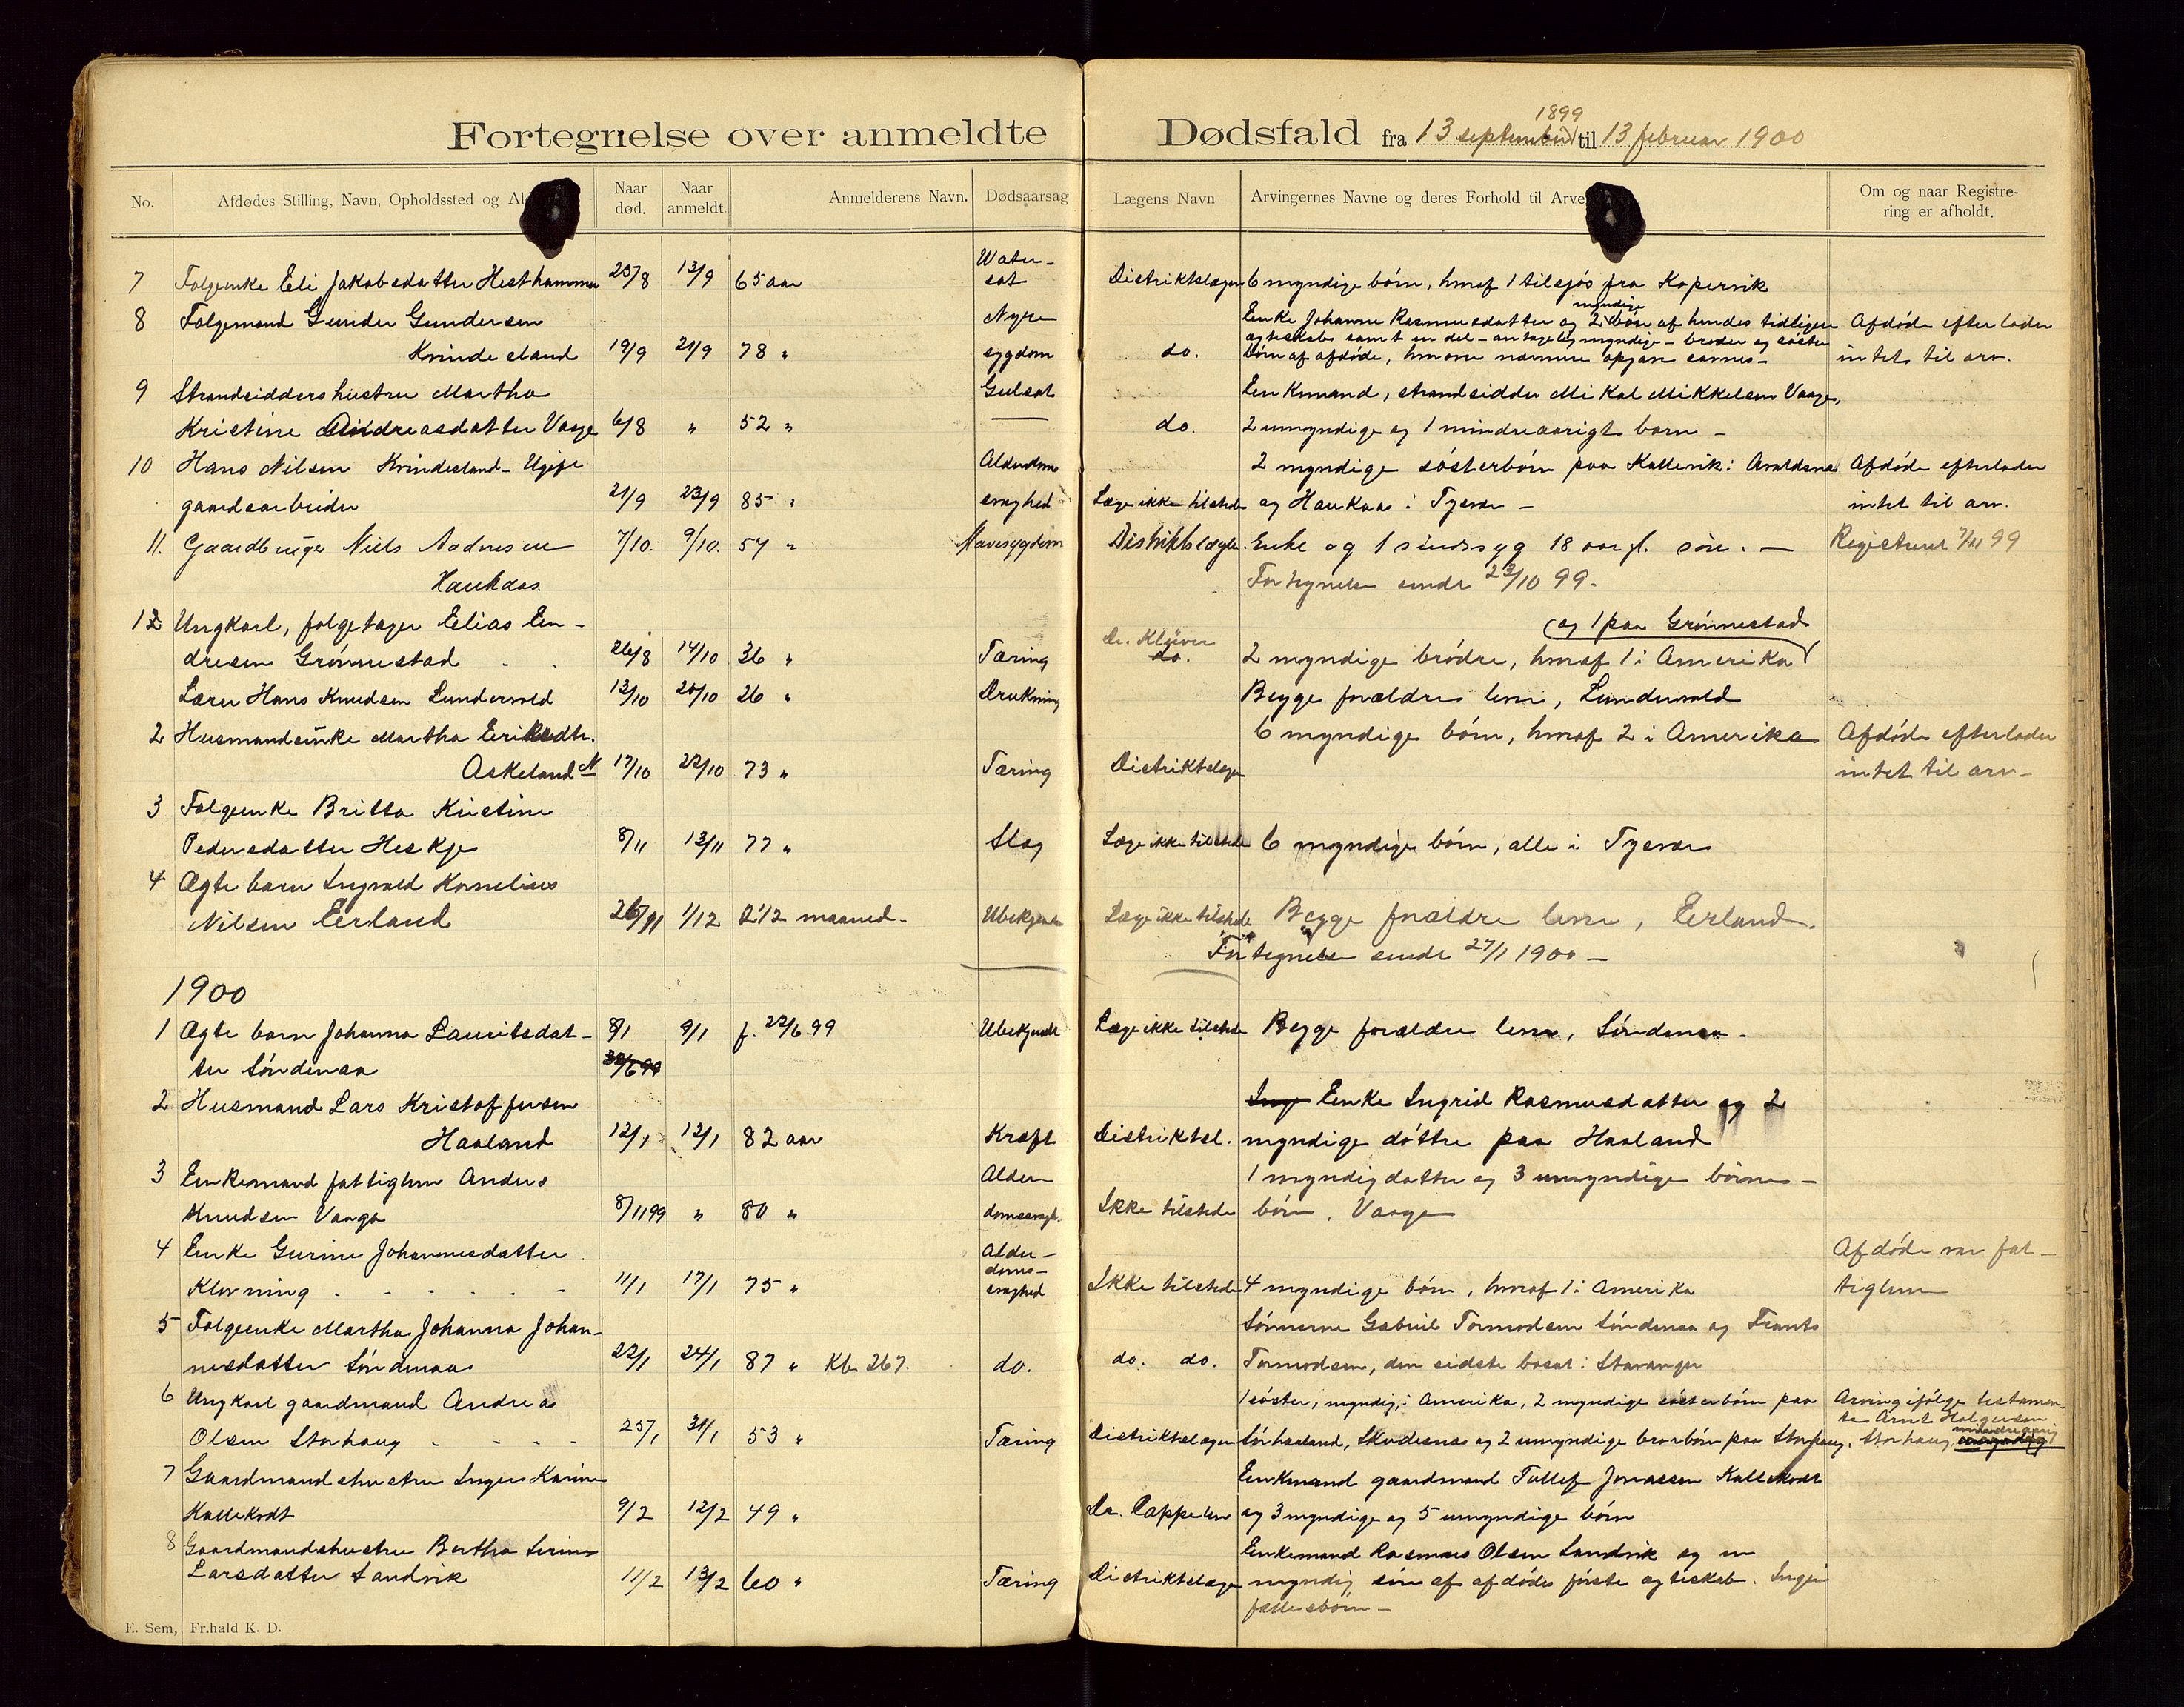 Fortegnelse over anmeldte Dødsfald fra 13 september 1899 til 13 februar 1900
No. Afdødes Stilling, Navn, Opholdssted og Al Naar død. Naar anmeldt. Anmelderens Navn. Dødsaarsag Lægens Navn Arvingernes Navne og deres Forhold til Arve Om og naar Registrering er afholdt.
7 Folgeenke Eli Jakobsdatter Hesthammer 25/8 13/9 65 aar Vatersot Distriktslægen 6 myndige börn, hvoraf 1 tilsjös fra Kopervik
8 Folgemand Gunder Gundersen
Kvindesland 19/9 21/9 78 " Nyresygdom do.
Enke Johanne Rasmusdatter og 2 myndige börn af hendes tidligere
egteskab samt en del – antagelig myndige – broder og söster
börn af afdöde, hvorom nærmere opgave savnes –
Afdöde efterlader
intet til arv.
9 Strandsiddershustru Martha
Kristine Andreasdatter Vaage 6/8 " 52 " Gulsot do.
Enkemand, strandsidder Mikal Mikkelsen Vaage,
2 umyndige og 1 mindreaarigt barn –
10 Hans Nilsen Kvindesland – Ugift
gaardsarbeider 21/9 23/9 85 " Alderdomssvaghed Læge ikke tilstede
2 myndige sösterbörn paa Kallevik i Avaldsnes
og Haukaas i Tysvær –
Afdöde efterlader
intet til arv.
11. Gaardbruger Niels Aadnesen 7/10. 9/10. 57 " Mavesygdom Distriktslægen. Enke og 1 sindssyg 18 aar gl. sön. — Registreret 7/11 99
Haukaas. Fortegnelse sendt 23/10 99.
12 Ungkarl, folgetager Elias En-
dresen Grönnestad 26/8 14/10 36 " Tæring Dr. Klüver do. 2 myndige brödre, hvoraf 1 i Amerika og 1 paa Grönnestad
Lærer Hans Knudsen Lundervold 13/10 20/10 26 " Drukning Begge forældre lever, Lundervold
2 Husmandsenke Martha Eriksdtr.
Askeland N 17/10 22/10 73 " Tæring Distriktslægen
6 myndige börn, hvoraf 2 i Amerika
Afdöde efterlader
intet til arv –
3 Folgeenke Britta Kristine
Pedersdatter Heskje 8/11 13/11 77 " Slag Læge ikke tilstede 6 myndige börn, alle i Tysvær
4 Ægte barn Ingvald Kornelius
Nilsen Eerland 26/11 1/12 2 1/2 maaned – Ubekjendt Læge ikke tilstede Begge forældre lever, Eerland.
Fortegnelse sendt 27/1 1900 –
1900
1 Ægte barn Johanna Lauritsdat- 8/1 9/1 f. 22/6 99 Ubekjendt Læge ikke tilstede Begge forældre lever, Söndenaa –
ter Söndenaa 22/6 99
2 Husmand Lars Kristoffersen
Haaland 12/1 12/1 82 aar Kræft Distriktsl.
Ing Enke Ingrid Rasmusdatter og 2
myndige döttre paa Haaland
3 Enkemand fattiglem Anders
Knudsen Vaage 8/11 99 " 80 " Alderdomssvagh. Ikke tilstede
1 myndig datter og 3 umyndige börne-
börn, Vaage
4 Enke Gurine Johannesdatter
Klovning 11/1 17/1 75 " Alderdomssvaghed Ikke tilstede 4 myndige börn, hvoraf 1 i Amerika
Afdöde var fat-
tiglem
5 Folgeenke Martha Johanna Johan-
nesdatter Söndenaa 22/1 24/1 87 " Kb. 267. do. do. do.
Sönnerne Gabriel Tormodsen Söndenaa og Frants
Tormodsen, den sidste bosat i Stavanger
6 Ungkarl gaardmand Andreas
Olsen Storhaug 25/1 31/1 53 " Tæring Distriktslægen
1 söster, myndig, i Amerika, 2 myndige sösterbörn paa
Sörhaaland, Skudesnes og 2 umyndige brorbörn paa Storhaug.
Arving ifölge testamen-
te Arnt Holgersen
Storhaug, mindreaarig umyndig
7 Gaardmandshustru Inger Karine
Kallekodt 9/2 12/2 49 " Dr. Cappelen
Enkemand gaardmand Tollef Jonassen Kallekodt
og 3 myndige og 5 umyndige börn
8 Gaardmandshustru Bertha Serine
Larsdatter Sandvik 11/2 13/2 60 " Tæring Distriktslægen
Enkemand Rasmus Olsen Sandvik og en
myndig sön af afdödes förste egteskab. Ingen
fællesbörn –
E. Sem, Fr.hald K. D.